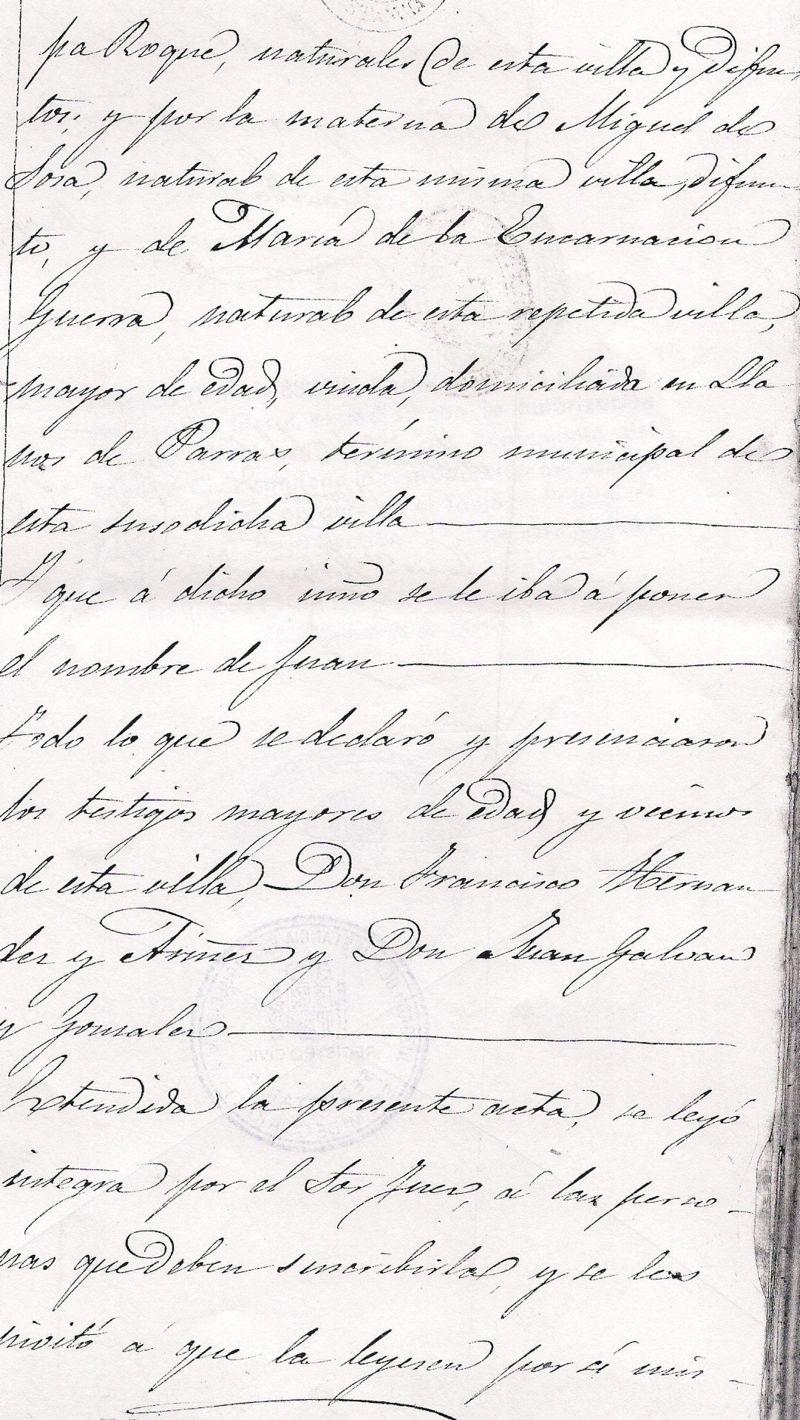 pa Roque, naturales de esta villa y difun
tos; y por la materna de Miguel de
Sosa, natural de esta misma villa, difun
to, y de María de la Encarnacion
Guerra, natural de esta repetida villa,
mayor de edad, viuda, domiciliada en Lla
nos de Parras, término municipal de
esta susodicha villa
Y que á dicho niño se le iba á poner
el nombre de Juan
Todo lo que se declaró y presenciaron
los testigos mayores de edad y vecinos
de esta villa, Don Francisco Hernan
dez y Don Juan Galvan
y Gonzalez
Extendida la presente acta, se leyó
integra por el Sor Juez, á las perso-
nas que deben suscribirla, y se les
invitó á que la leyesen por sí mis-
REGISTRO CIVIL